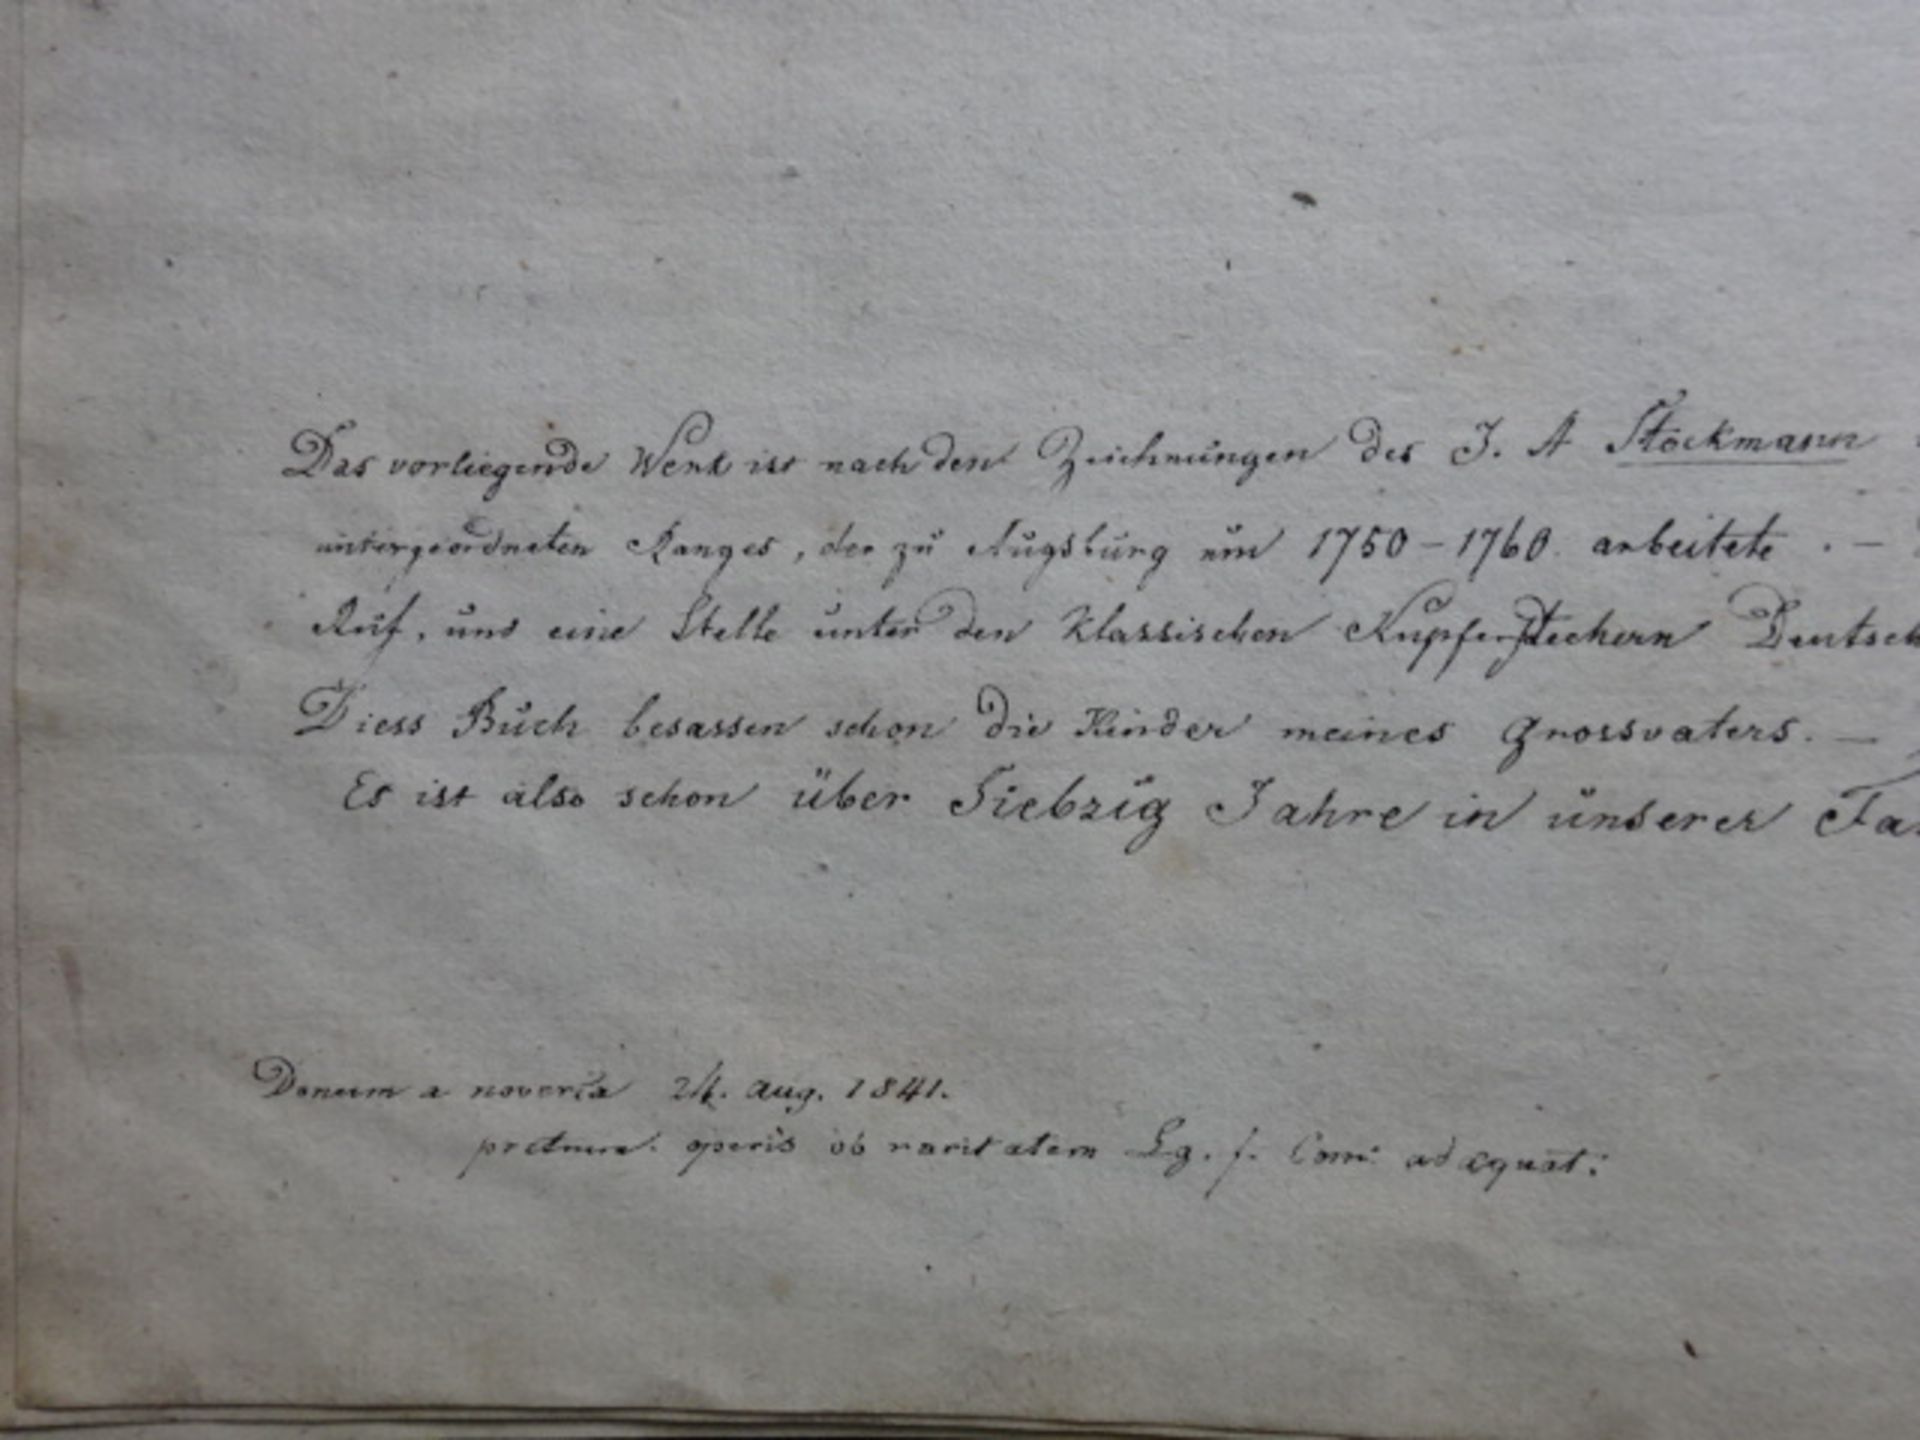 Das vorliegende Werk ist nach den Zeichnungen des J. A Stockmann
untergeordneten Ranges, der zu Augsburg um 1750 – 1760 arbeitete . —
Ruf, und eine Stelle unter den Klassischen Kupferstechern Deutsch
Diess Buch besassen schon die Kinder meines Grossvaters. —
Es ist also schon über Siebzig Jahre in unserer Fa
Donum a noverca 24. aug. 1841.
operis ob raritatem adæquat: